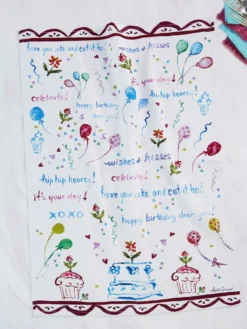 have your cake and eat it too!
wishes & kisses
it's your day!
celebrate!
hip hip hooray!
happy birthday dear you!
wishes & kisses
hip hip hooray!
it's your day!
have your cake and eat it too!
XOXO
happy birthday dear you!